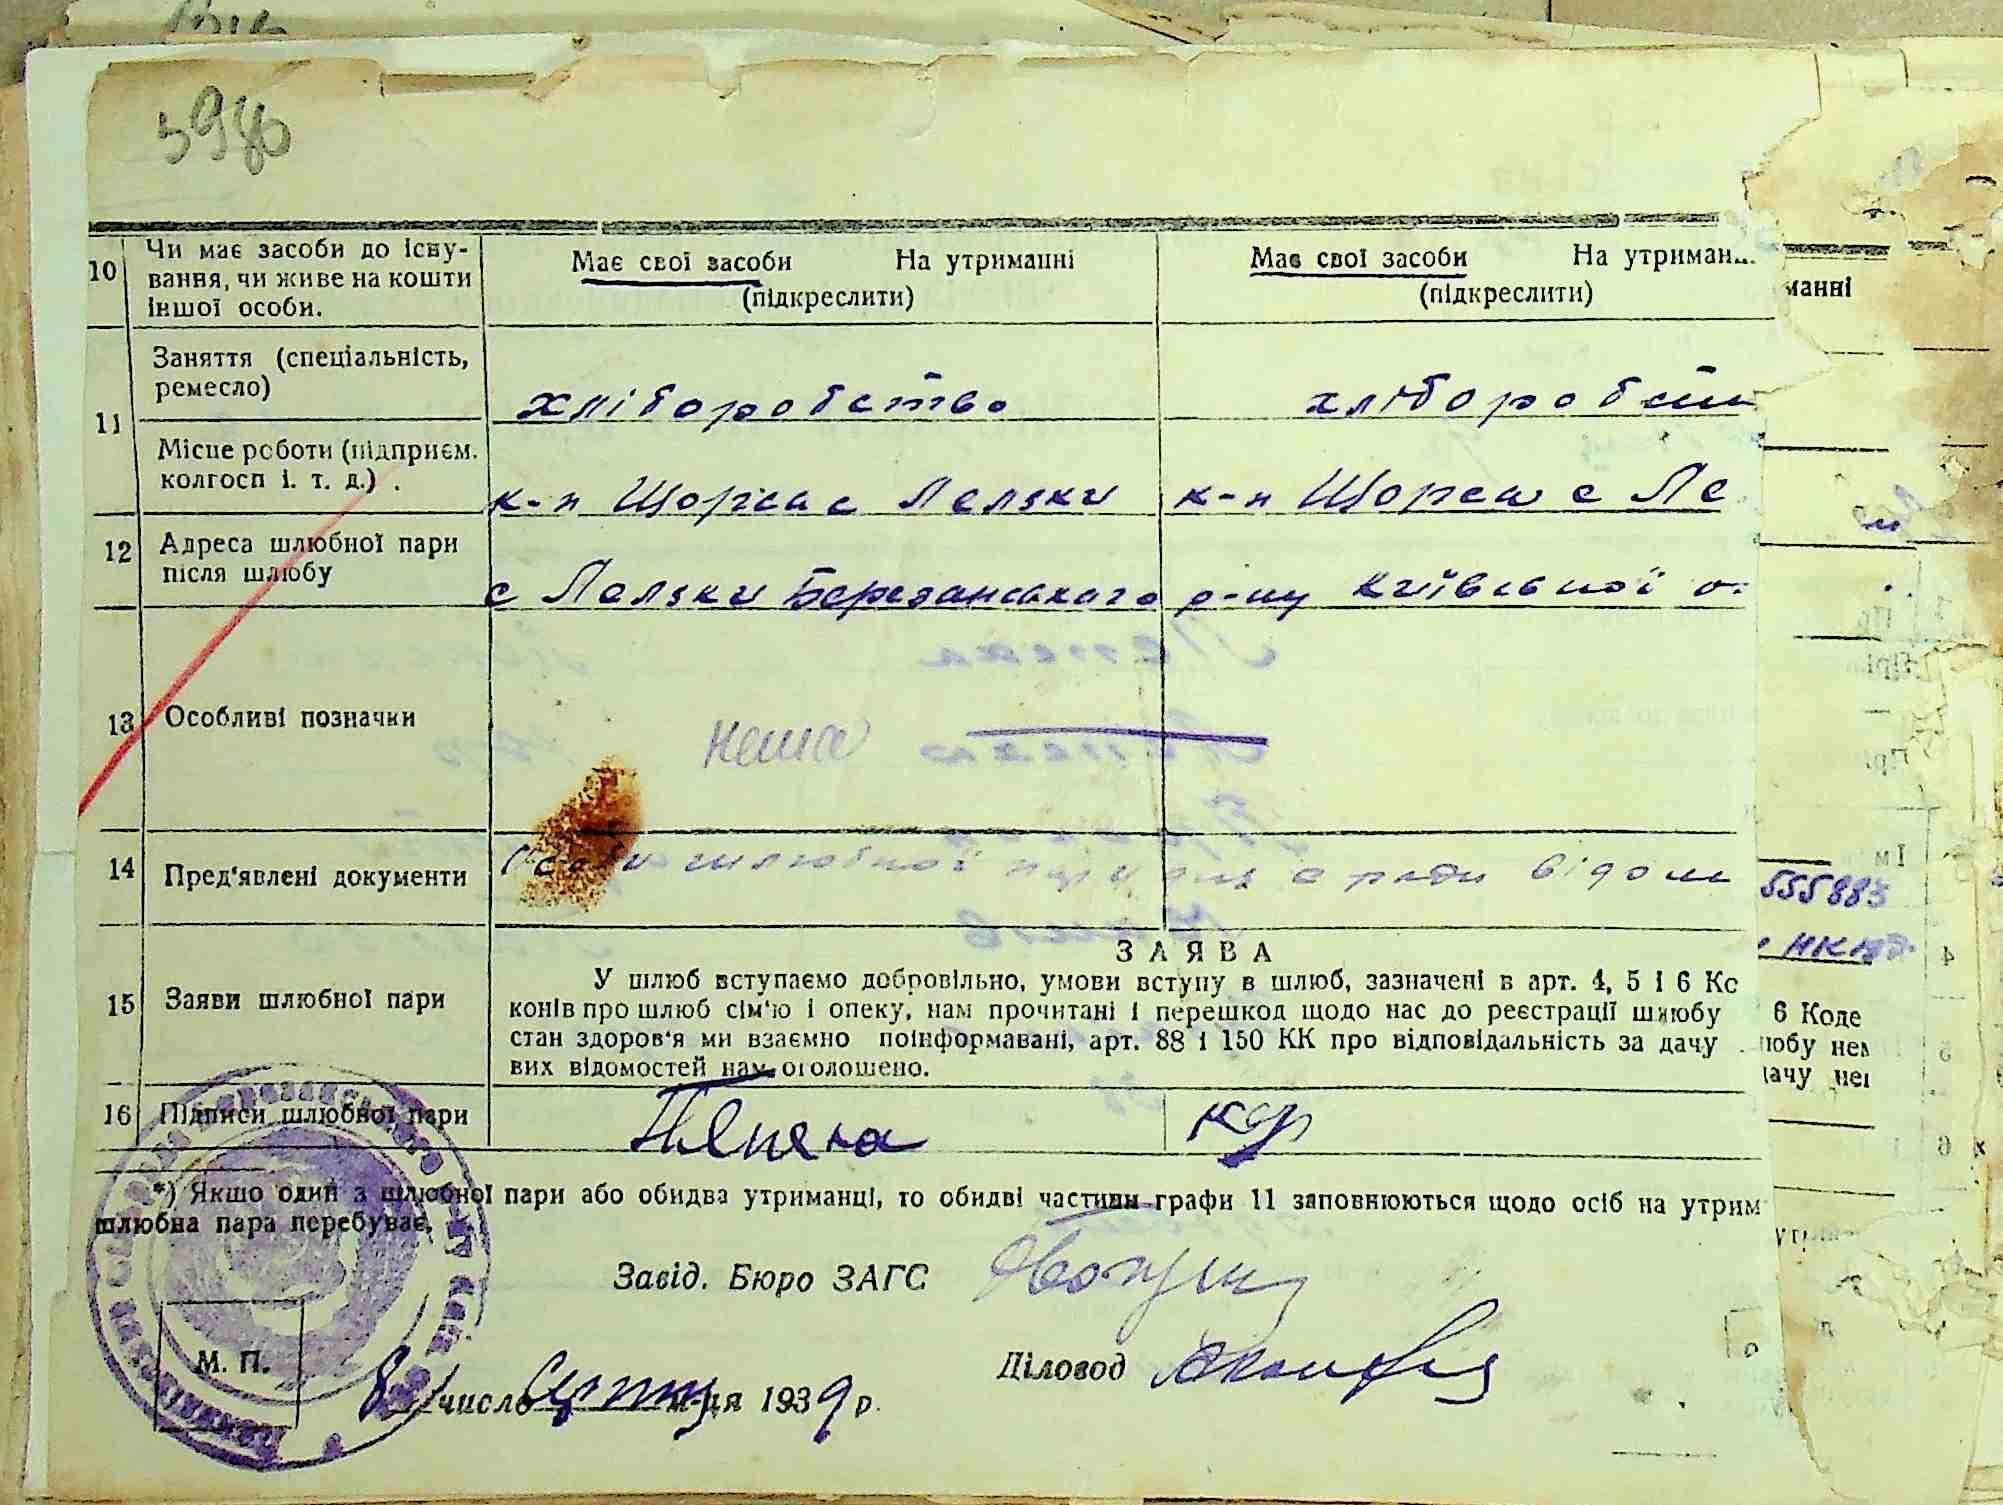 10 Чи має засоби до існу-
вання, чи живе на кошти
іншої особи.
Має свої засоби На утриманні
(підкреслити)
Має свої засоби На утриман
(підкреслити)
манні
11 Заняття (спеціальність,
ремесло)
хліборобство
хлібороб
Місце роботи (підприєм.
колгосп і. т. д.) .
к-п Щорса с Леляки
к-п Щорса с Ле
12 Адреса шлюбної пари
після шлюбу
с Леляки Березанського р-ну Київської о
13 Особливі позначки
нема
14 Пред'явлені документи
шлюбної пари с ради відом
555883
15 Заяви шлюбної пари
ЗАЯВА
У шлюб вступаємо добровільно, умови вступу в шлюб, зазначені в арт. 4, 5 і 6 Ко
конів про шлюб сім'ю і опеку, нам прочитані і перешкод щодо нас до реєстрації шлюбу
стан здоров'я ми взаємно поінформавані, арт. 88 і 150 КК про відповідальність за дачу
вих відомостей нам оголошено.
6 Коде
любу нем
дачу неп
16 Підписи шлюбної пари
*) Якшо один з шлюбної пари або обидва утриманці, то обидві частини графи 11 заповнюються щодо осіб на утрим
шлюбна пара перебуває.
Завід. Бюро ЗАГС
Діловод
М. П.
8 число Серпня м-ця 1939 р.